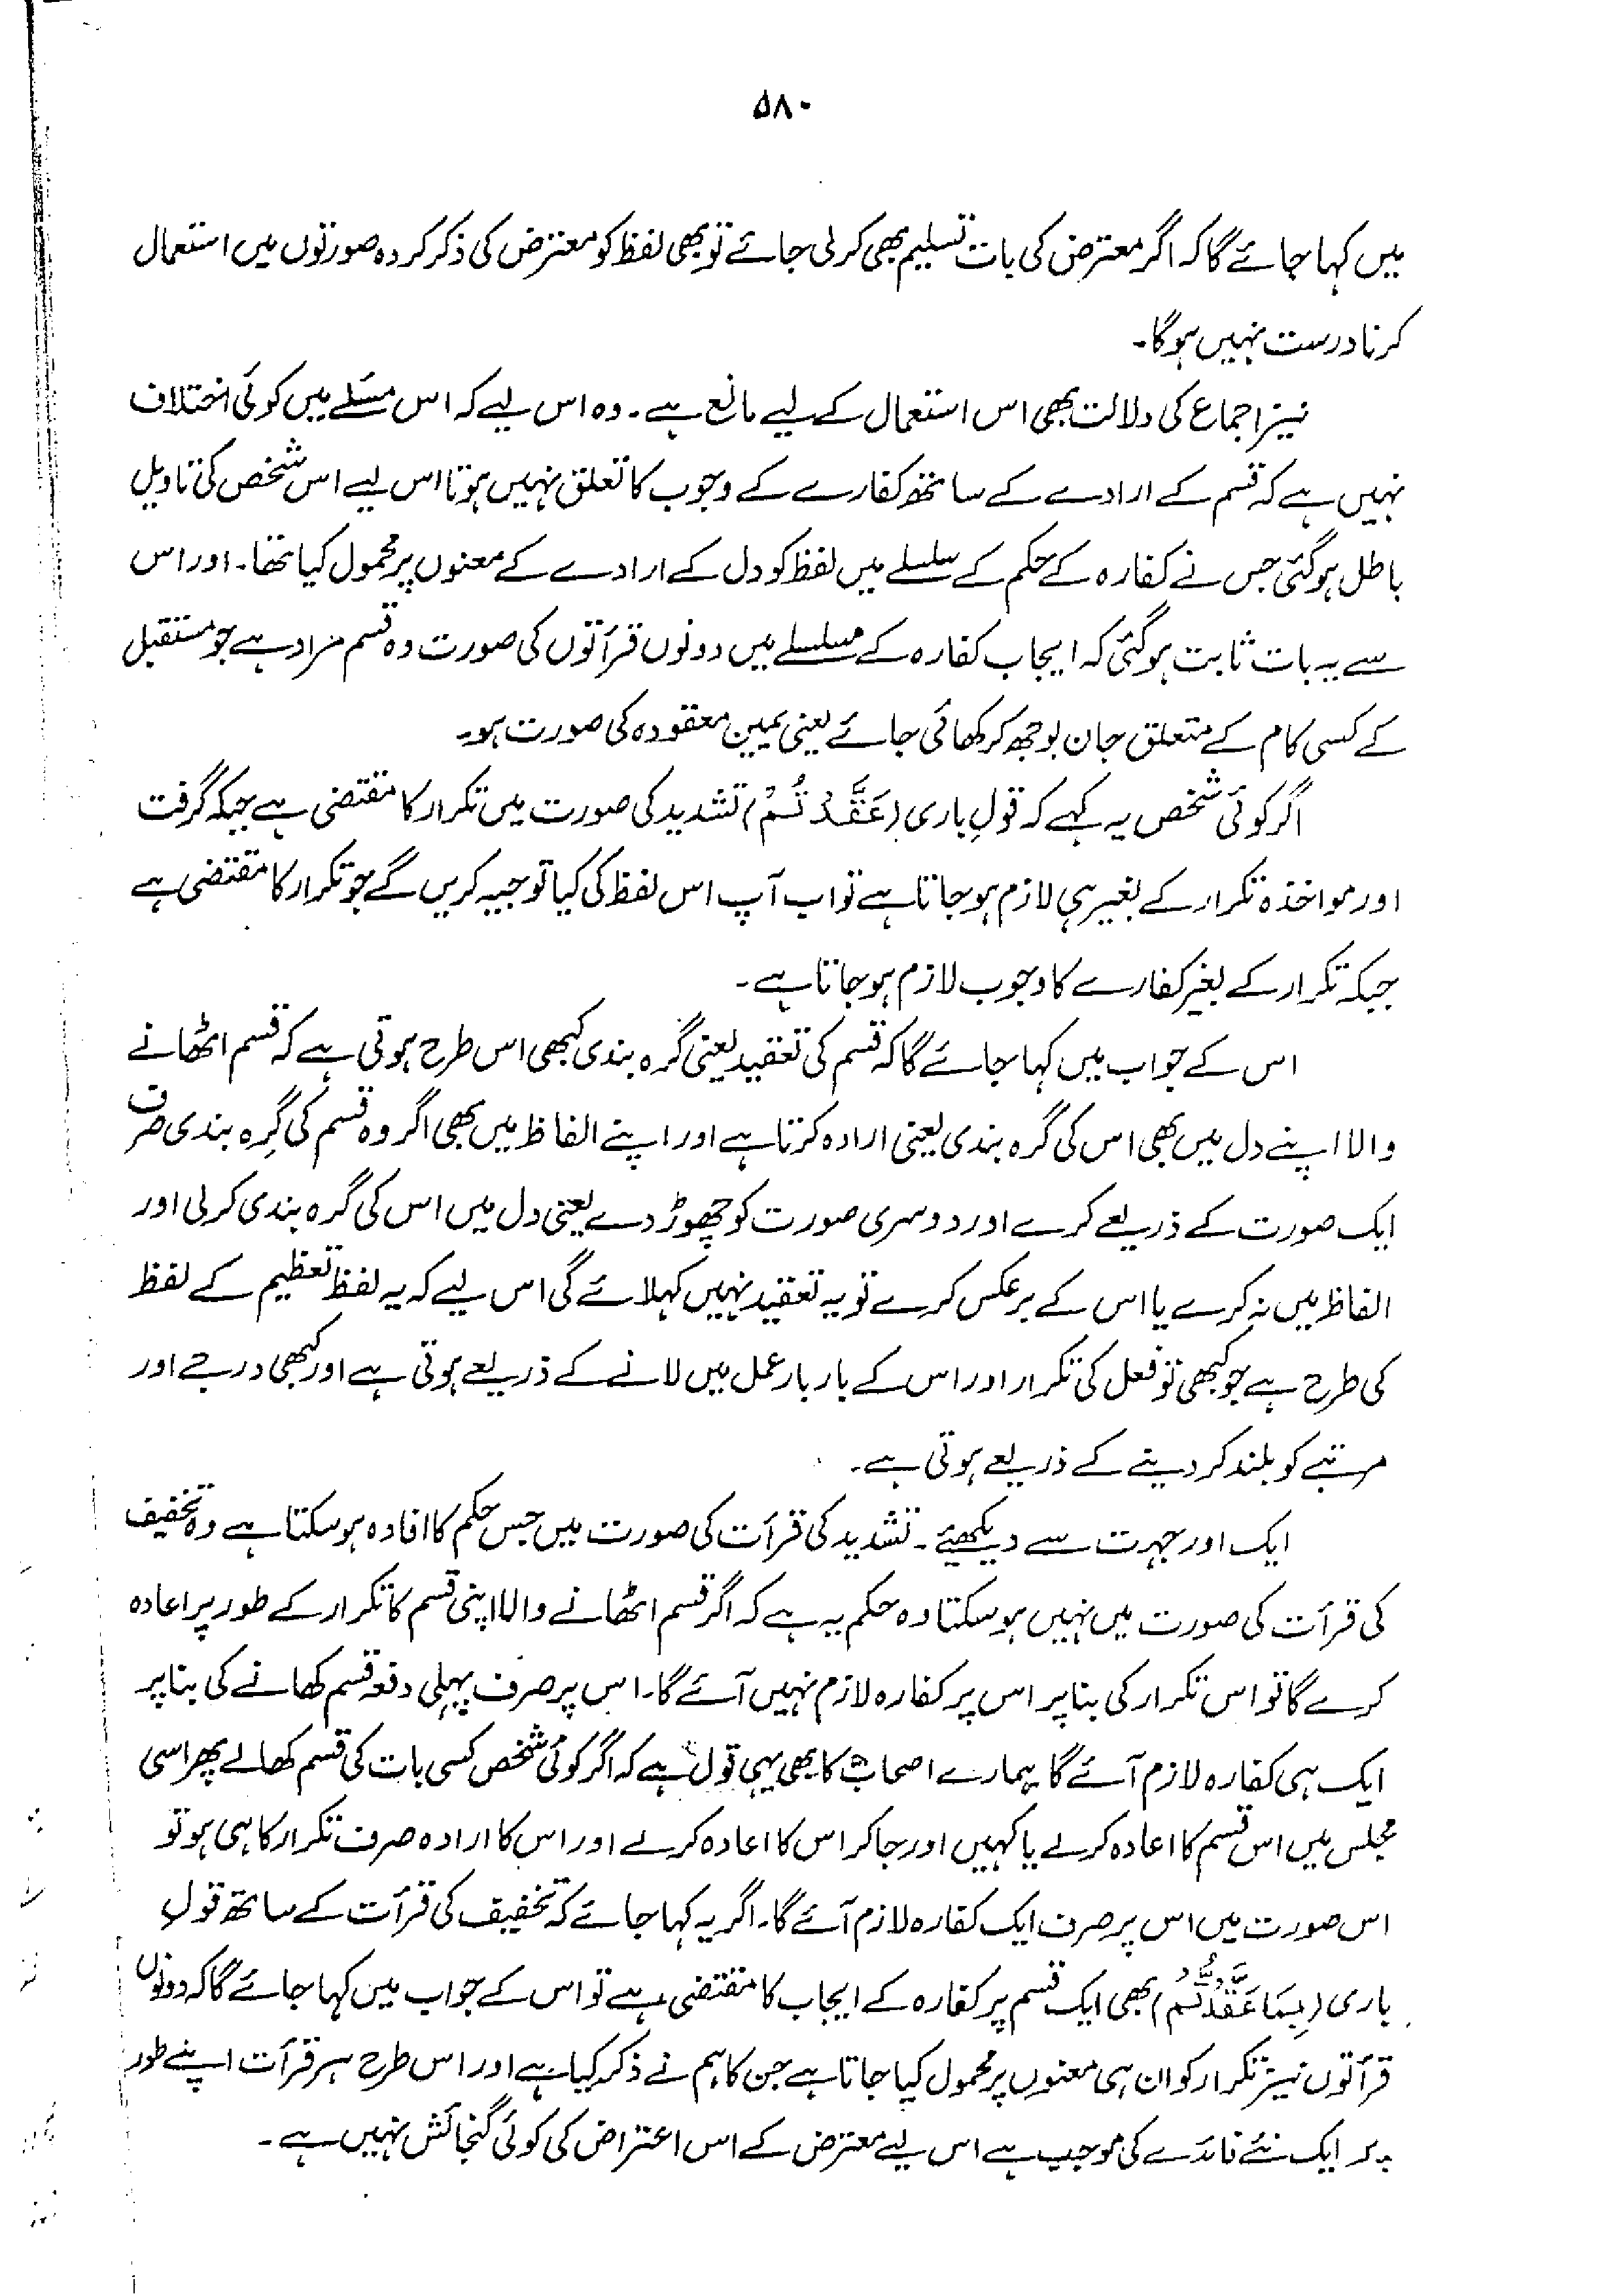 ۵۸۰
میں کہا جائے گا کہ اگر معترض کی بات تسلیم بھی کر لی جائے تو بھی لفظ کو معترض کی ذکر کردہ صورتوں میں استعمال
کرنا درست نہیں ہوگا۔
نیز اجماع کی دلالت بھی اس استعمال کے لیے مانع ہے۔ وہ اس لیے کہ اس مسئلے میں کوئی اختلاف
نہیں ہے کہ قسم کے ارادے کے ساتھ کفارے کے وجوب کا تعلق نہیں ہوتا اس لیے اس شخص کی تاویل
باطل ہوگئی جس نے کفارہ کے حکم کے سلسلے میں لفظ کو دل کے ارادے کے معنوں پر محمول کیا تھا۔ اور اس
سے یہ بات ثابت ہوگئی کہ ایجاب کفارہ کے سلسلے میں دونوں قرأتوں کی صورت وہ قسم مراد ہے جو مستقبل
کے کسی کام کے متعلق جان بوجھ کر کھائی جائے یعنی یمین معقودہ کی صورت ہو۔
اگر کوئی شخص یہ کہے کہ قولِ باری (عَقَّدْتُمْ) تشدید کی صورت میں تکرار کا مقتضی ہے جبکہ گرفت
اور مواخذہ تکرار کے بغیر ہی لازم ہو جاتا ہے تو اب آپ اس لفظ کی کیا توجیہ کریں گے جو تکرار کا مقتضی ہے
جبکہ تکرار کے بغیر کفارے کا وجوب لازم ہو جاتا ہے۔
اس کے جواب میں کہا جائے گا کہ قسم کی تعقید یعنی گرہ بندی کبھی اس طرح ہوتی ہے کہ قسم اٹھانے
والا اپنے دل میں بھی اس کی گرہ بندی یعنی ارادہ کرتا ہے اور اپنے الفاظ میں بھی اگر وہ قسم کی گِرہ بندی صرف
ایک صورت کے ذریعے کرے اور دوسری صورت کو چھوڑ دے یعنی دل میں اس کی گرہ بندی کر لی اور
الفاظ میں نہ کرے یا اس کے برعکس کرے تو یہ تعقید نہیں کہلائے گی اس لیے کہ یہ لفظ تعظیم کے لفظ
کی طرح ہے جو کبھی تو فعل کی تکرار اور اس کے بار بار عمل میں لانے کے ذریعے ہوتی ہے اور کبھی درجے اور
مرتبے کو بلند کر دینے کے ذریعے ہوتی ہے۔
ایک اور جہت سے دیکھئے۔ تشدید کی قرأت کی صورت میں جس حکم کا افادہ ہو سکتا ہے وہ تخفیف
کی قرأت کی صورت میں نہیں ہو سکتا وہ حکم یہ ہے کہ اگر قسم اٹھانے والا اپنی قسم کا تکرار کے طور پر اعادہ
کرے گا تو اس تکرار کی بنا پر اس پر کفارہ لازم نہیں آئے گا۔ اس پر صرف پہلی دفعہ قسم کھانے کی بنا پر
ایک ہی کفارہ لازم آئے گا ہمارے اصحاب کا بھی یہی قول ہے کہ اگر کوئی شخص کسی بات کی قسم کھا لے پھر اسی
مجلس میں اس قسم کا اعادہ کر لے یا کہیں اور جا کر اس کا اعادہ کر لے اور اس کا ارادہ صرف تکرار کا ہی ہو تو
اس صورت میں اس پر صرف ایک کفارہ لازم آئے گا۔ اگر یہ کہا جائے کہ تخفیف کی قرأت کے ساتھ قولِ
باری (بِمَا عَقَّدْتُّمْ) بھی ایک قسم پر کفارہ کے ایجاب کا مقتضی ہے تو اس کے جواب میں کہا جائے گا کہ دونوں
قرأتوں نیز تکرار کو ان ہی معنوں پر محمول کیا جاتا ہے جن کا ہم نے ذکر کیا ہے اور اس طرح ہر قرأت اپنے طور
پر ایک نئے فائدے کی موجب ہے اس لیے معترض کے اس اعتراض کی کوئی گنجائش نہیں ہے۔